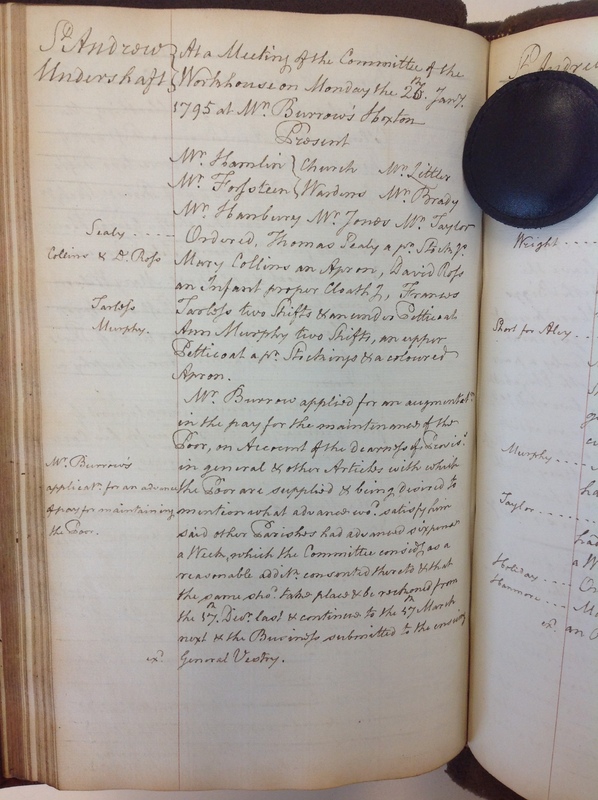 St Andrew
Undershaft
At a Meeting of the Committee of the
Workhouse on Monday the 26th. Jany.
1795 at Mr. Burrow's Hoxton
Present
Mr. Hamlin } Church Mr. Littler
Mr. Forssteen } Wardens Mr. Brady
Mr. Hanbury Mr. Jones Mr. Taylor
Sealy ....
Ordered, Thomas Sealy a pr. Stockgs.
Collins & D. Ross
Mary Collins an Apron, David Ross
an Infant proper Cloathg, Frances
Tarless
Tarless two Shifts & an under Petticoat
Murphy.
Ann Murphy two Shifts, an upper
Petticoat a pr. Stockings & a coloured
Apron.
Mr. Burrow applied for an augmentatn.
in the pay for the maintenance of the
Poor, on Account of the dearness of Provisn.
Mr. Burrow's
in general & other Articles with which
applicatn. for an advance
the Poor are supplied & being desired to
of pay for maintaining
mention what advance wod. satisfy him
the Poor.
said other Parishes had advanced sixpence
a Week, which the Committee considg. as a
reasonable additn. consented thereto & that
the same shod. take place & be reckoned from
the 17th. Decr. last & continue to the 17th March
next & the Business submitted to the ensuing
exd.
General Vestry.
St Andrew
Wright ....
Short for Aley ..
Murphy ....
Taylor ....
Holiday ....
Hanmore ...
exd.